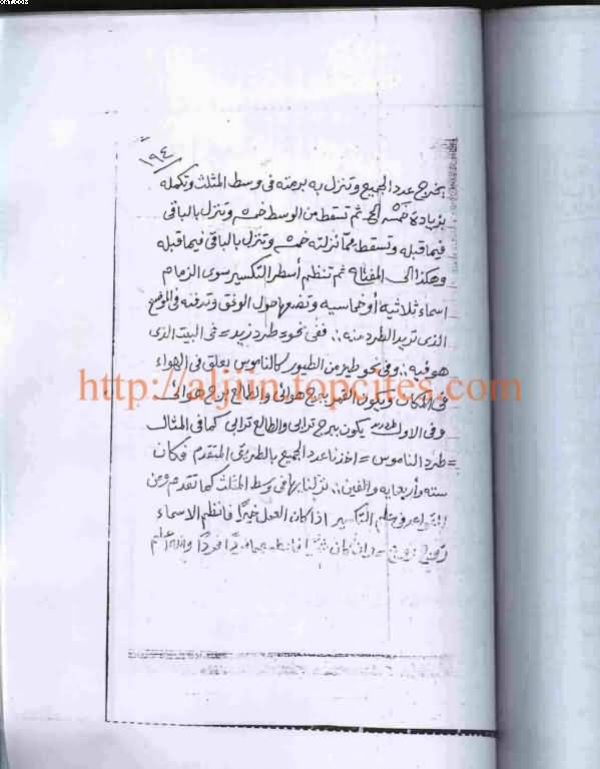 ١٩٤
يخرج عدد الجميع وتنزل به برمته في وسط المثلث وتكمله
بزيادة خمسه الخ ثم تسقط من الوسط خمسه وتنزل بالباقي
فيما قبله وتسقط مما نزلته خمسه وتنزل بالباقي فيما قبله
وهكذا الى المفتاح ثم تنظم أسطر التكسير سوى الزمام
اسماء ثلاثيه أو خماسيه وتضعها حول الوفق وتدفنه في الموضع
الذي تريد الطرد منه ∴ ففي نحو = طرد زيد = في البيت الذي
هو فيه ∴ وفي نحو طير من الطيور كالناموس يعلق في الهواء
في المكان ويكون القمر ببرج هوائي والطالع برج هوائي
وفي الاول يكون ببرج ترابي والطالع ترابي كما في المثال
= طرد الناموس = اخذنا عدد الجميع بالطريق المتقدم فكان
سته وأربعمايه والفين ∴ نزلنا بها في وسط المثلث كما تقدم ومن
في علم التكسير اذا كان العمل خيرا فانظم الاسماء
كان والله اعلم
http://aljiin.topcites.com